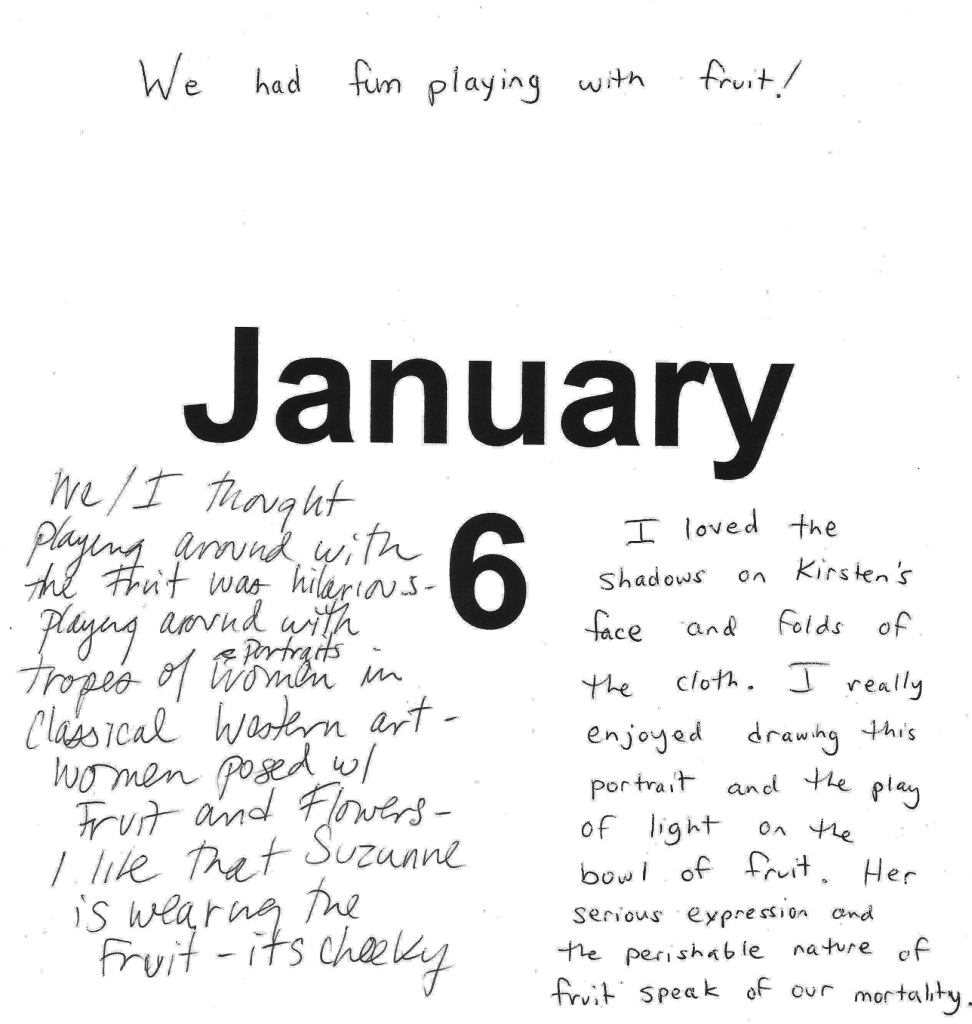 We had fun playing with fruit!
January
6
We/I thought
playing around with
the fruit was hilarious-
playing around with
& Portraits
tropes of women in
Classical Western art-
women posed w/
Fruit and Flowers-
I like that Suzanne
is wearing the
Fruit - its cheeky
I loved the
shadows on Kirsten's
face and folds of
the cloth. I really
enjoyed drawing this
portrait and the play
of light on the
bowl of fruit. Her
serious expression and
the perishable nature of
fruit speak of our mortality.